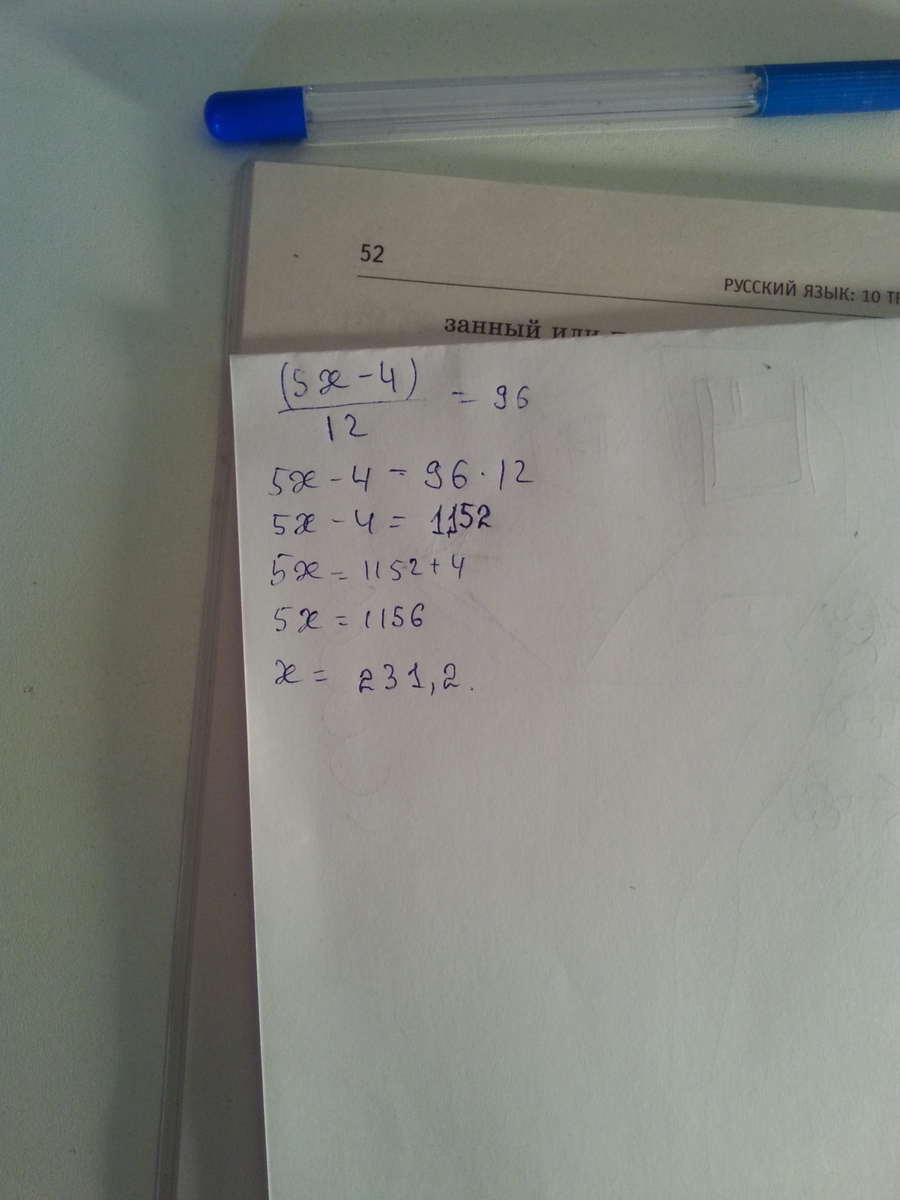 52
РУССКИЙ ЯЗЫК: 10
занный или
(5x - 4)
12
= 96
5x - 4 = 96 · 12
5x - 4 = 1152
5x = 1152 + 4
5x = 1156
x = 231,2.